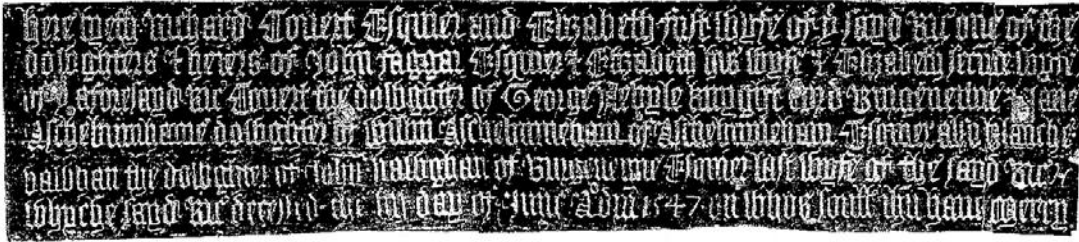 here lyeth richard Couert Esquier and Elizabeth first wyfe of yͤ sayd Ric one of the
doughters & heiers of John faggar Esquier & Elizabeth his wyfe & Elizabeth secūde wyfe
of aforesayd Ric Couert the doughter of George Nevyle knyght lord & Jane
Asscheburnhame doughter of willm Asscheburneham of Asscheburneham Esquier and blanche
vawhan the doughter of John vaughan of Esquier last wyfe of the sayd Ric
whyche sayd Ric decessid the day of June Aᵒ dni 1547 on whos soull ihu haue mercy